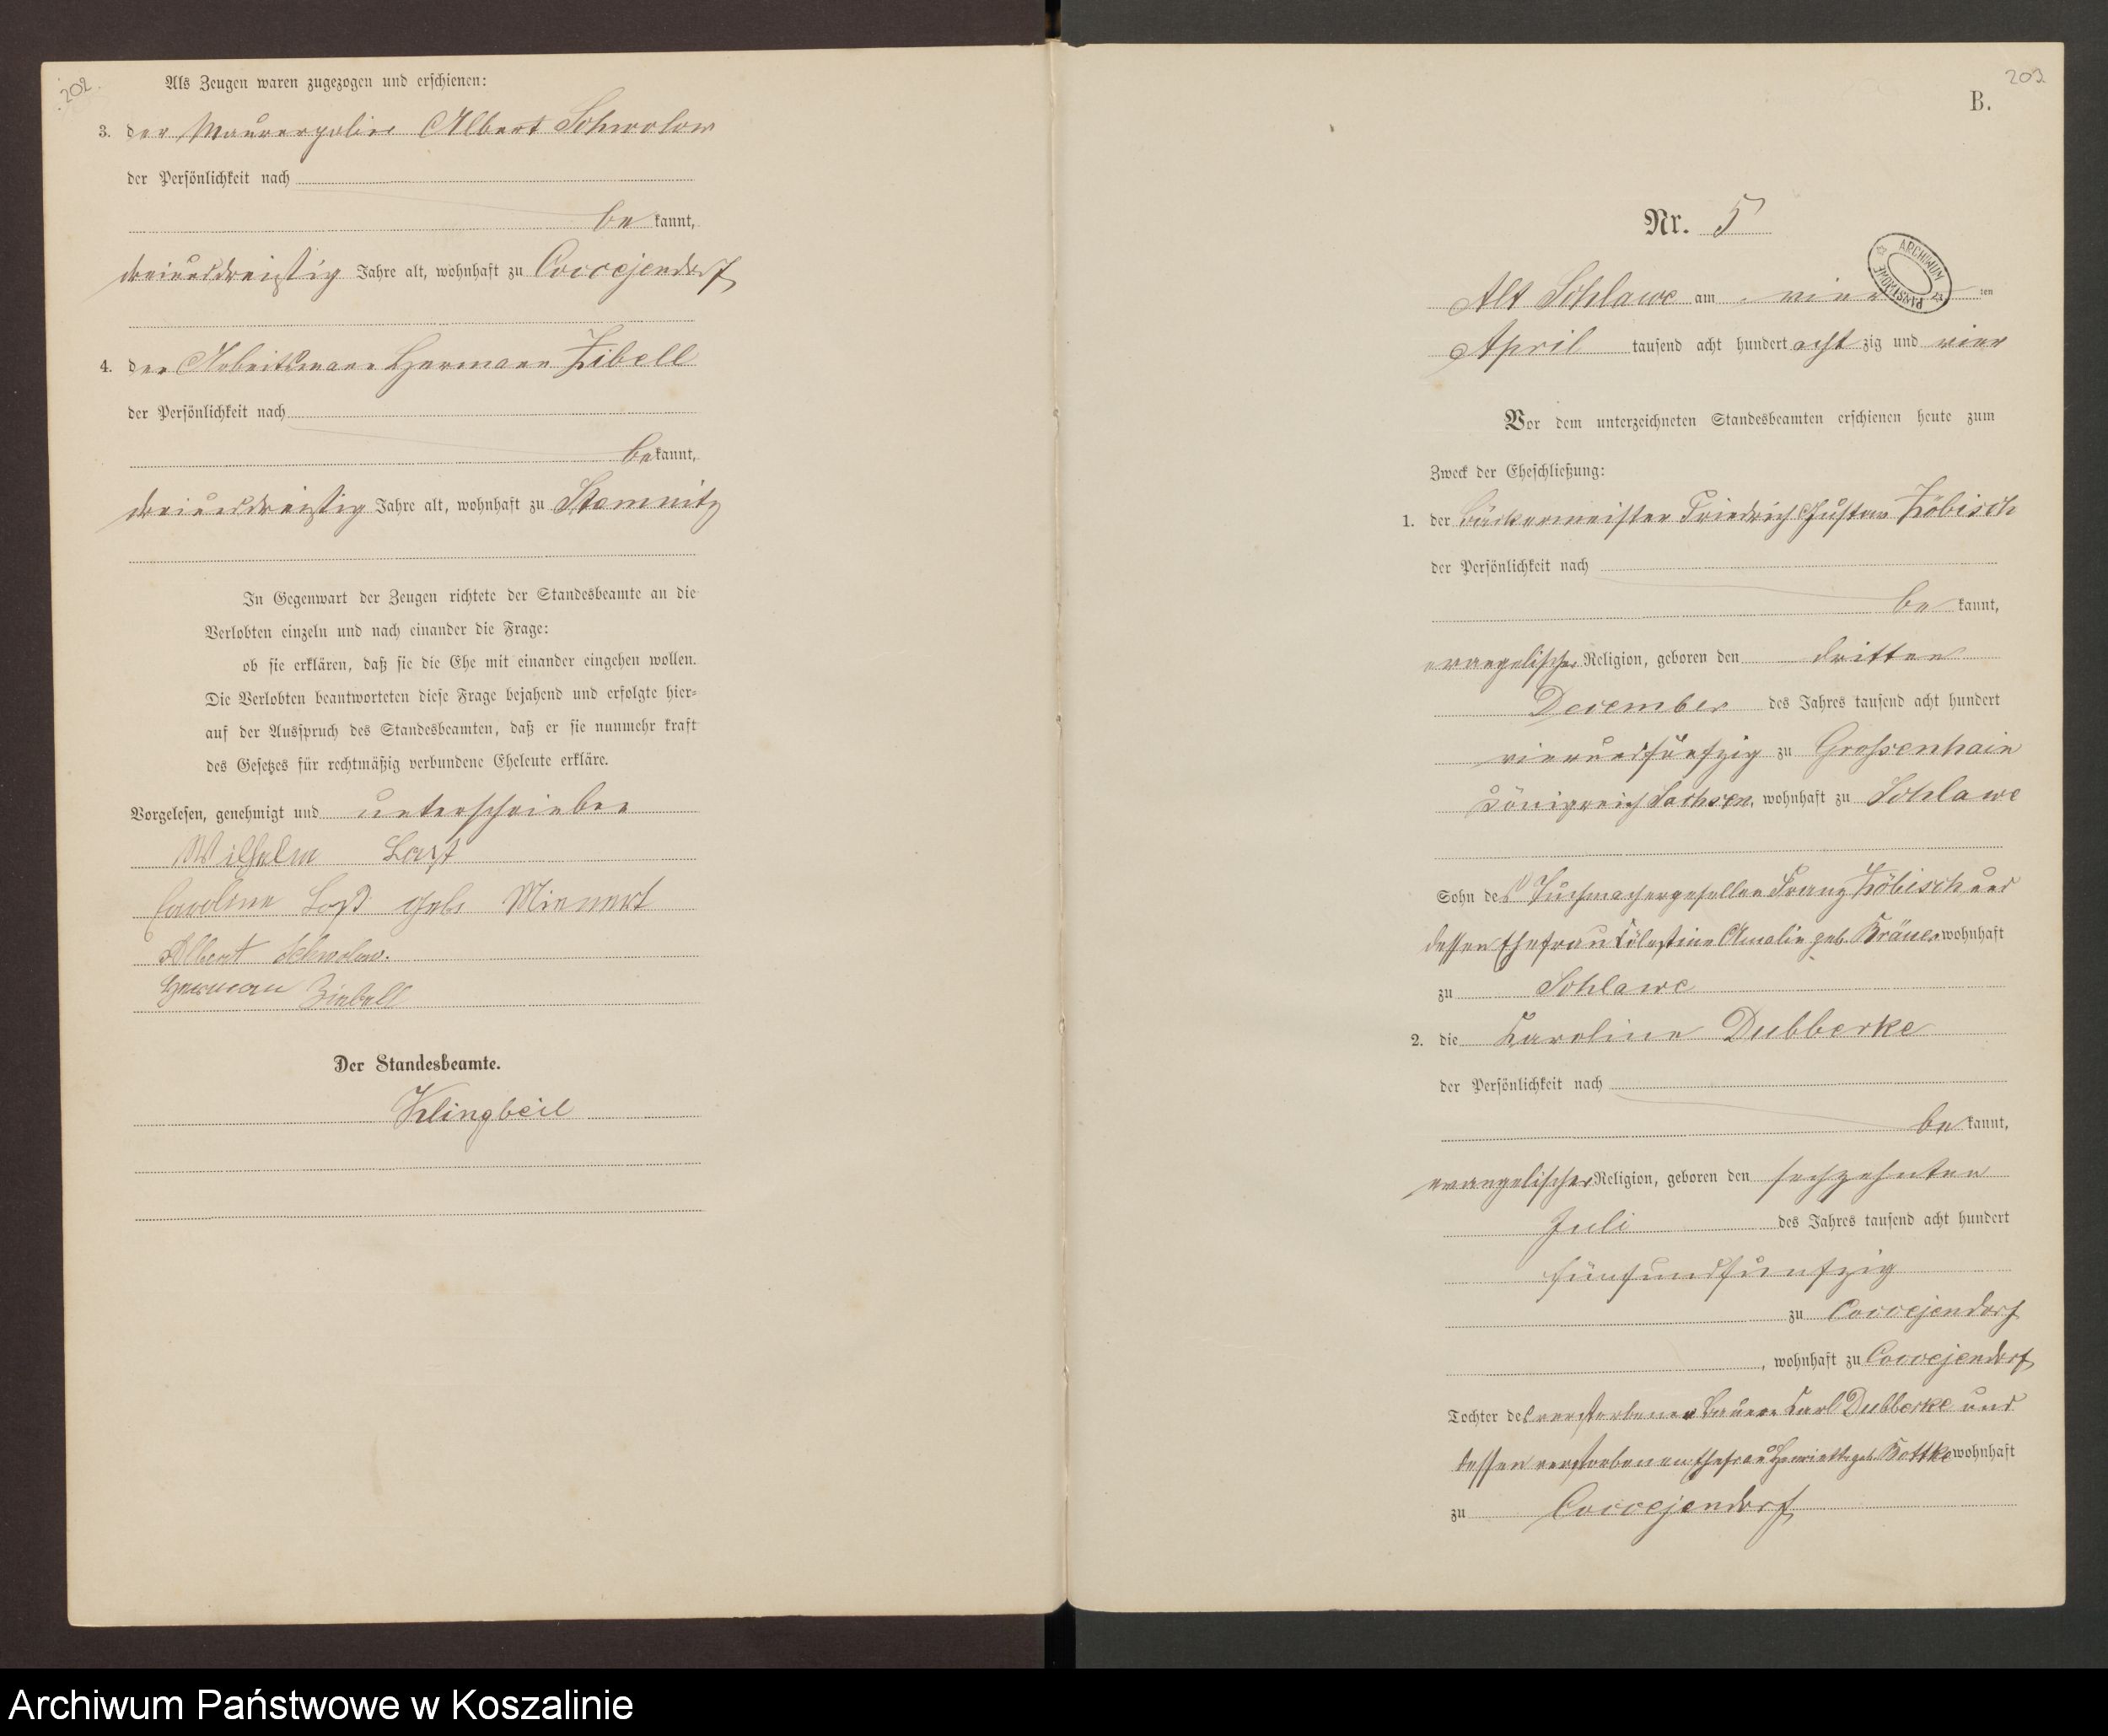 202.
Als Zeugen waren zugezogen und erschienen:
3. der Maurerpolier Albert Schwolow
der Persönlichkeit nach
be kannt,
dreiunddreißig Jahre alt, wohnhaft zu Coccejendorf
4. der Arbeitsmann Hermann Zibell
der Persönlichkeit nach
be kannt,
dreiunddreißig Jahre alt, wohnhaft zu Stemnitz
In Gegenwart der Zeugen richtete der Standesbeamte an die
Verlobten einzeln und nach einander die Frage:
ob sie erklären, daß sie die Ehe mit einander eingehen wollen.
Die Verlobten beantworteten diese Frage bejahend und erfolgte hier-
auf der Ausspruch des Standesbeamten, daß er sie nunmehr kraft
des Gesetzes für rechtmäßig verbundene Eheleute erkläre.
Vorgelesen, genehmigt und unterschrieben
Wilhelm
Caroline geb.
Albert Schwolow.
Herman Ziebell
Der Standesbeamte.
Klingbeil
203
B.
Nr. 5
ARCHIWUM PAŃSTWOWE
Alt Schlawe am vier ten
April tausend acht hundert acht zig und vier
Vor dem unterzeichneten Standesbeamten erschienen heute zum
Zweck der Eheschließung:
1. der Bäckermeister Friedrich Gustav Zöbisch
der Persönlichkeit nach
be kannt,
evangelischer Religion, geboren den dritten
December des Jahres tausend acht hundert
vierundfünfzig zu Grossenhain
Königreich Sachsen, wohnhaft zu Schlawe
Sohn des Tuchmachergesellen Franz Zöbisch und
dessen Ehefrau Cölestine Amalie geb. wohnhaft
zu Schlawe
2. die Karoline Dubberke
der Persönlichkeit nach
be kannt,
evangelischer Religion, geboren den sechzehnten
Juli des Jahres tausend acht hundert
fünfundfunfzig
zu Coccejendorf
, wohnhaft zu Coccejendorf
Tochter des verstorbenen Bauern Karl Dubberke und
dessen verstorbenen Ehefrau Henriette geb. Kottke wohnhaft
zu Coccejendorf
Archiwum Państwowe w Koszalinie